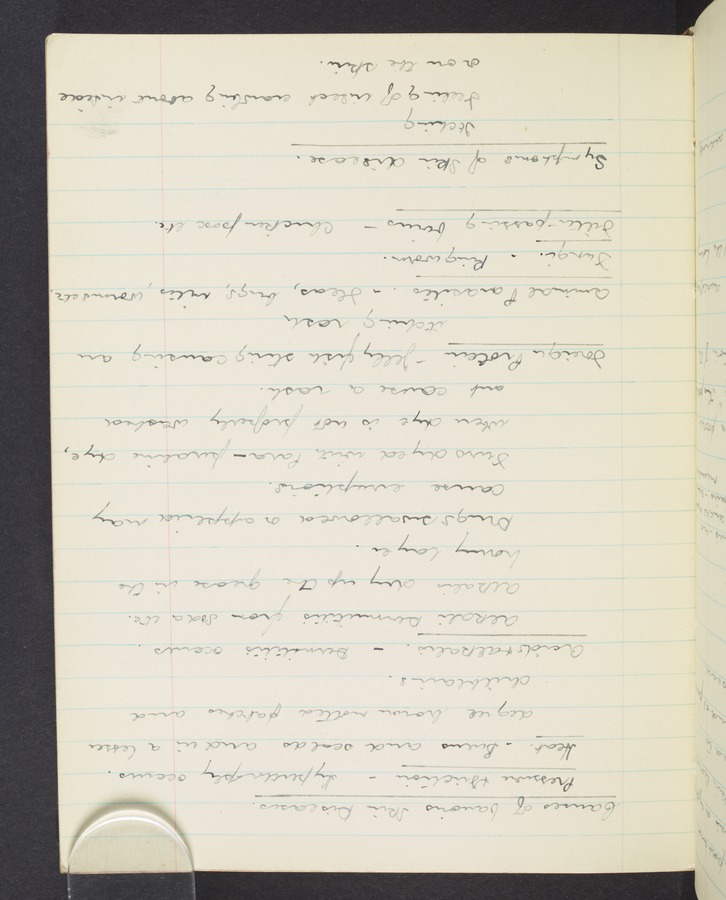 Causes of Various Skin Diseases.
Pressure & Friction - Hypertrophy occurs.
Heat. - Burns and scalds and in a lesser
degree brown mottled patches and
chilblains.
Acids & alkalis. - Dermititis occurs
Alkali Dermititis from soda etc.
Alkalis dry up the grease in the
horny layer.
Drugs swallowed or applied may
cause eruptions.
Furs dyed with Para- dye,
when dye is not properly washed
out cause a rash.
Foreign Protein - Jelly fish sting causing an
itching rash
Animal Parasites. - fleas, bugs, mites,
Fungi. - Ringworm.
Filter-passing virus - Chicken pox etc.
Symptoms of Skin disease.
Itching
Feeling of insect crawling about inside
or on the skin.